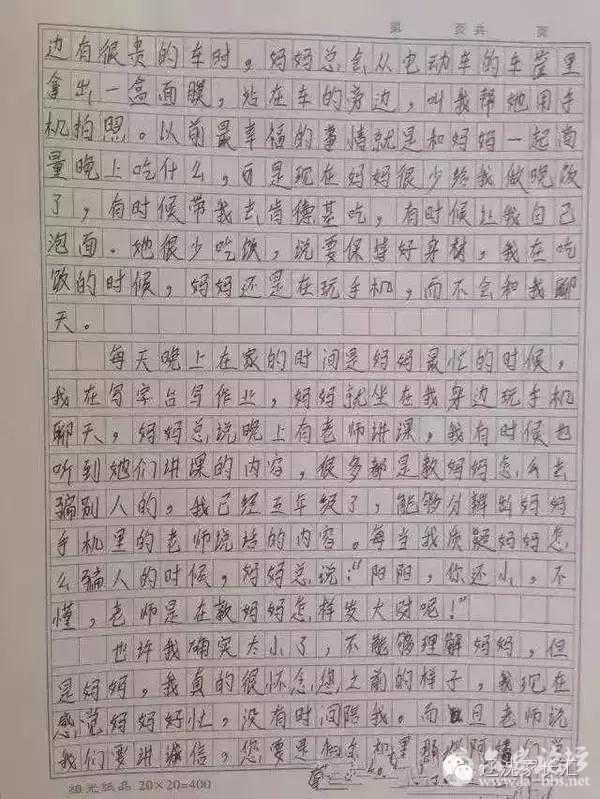 第 页共 页
边有很贵的车时，妈妈总会从电动车的车筐里
拿出一盒面膜，站在车的旁边，叫我帮她用手
机拍照。以前最幸福的事情就是和妈妈一起商
量晚上吃什么，可是现在妈妈很少给我做晚饭
了，有时候带我去肯德基吃，有时候让我自己
泡面。她很少吃饭，说要保持好身材，我在吃
饭的时候，妈妈还是在玩手机，而不会和我聊
天。
每天晚上在家的时间是妈妈最忙的时候，
我在写字台写作业，妈妈就坐在我身边玩手机
聊天，妈妈总说晚上有老师讲课，我有时候也
听到她们讲课的内容，很多都是教妈妈怎么去
骗别人的。我已经五年级了，能够分辨出妈妈
手机里的老师说话的内容。每当我质疑妈妈怎
么骗人的时候，妈妈总说：“阳阳，你还小，不
懂，老师是在教妈妈怎样发大财呢！”
也许我确实太小了，不能够理解妈妈，但
是妈妈，我真的很怀念您之前的样子，我现在
感觉妈妈好忙，没有时间陪我。而且老师说
我们要讲诚信，您要是
20×20=400